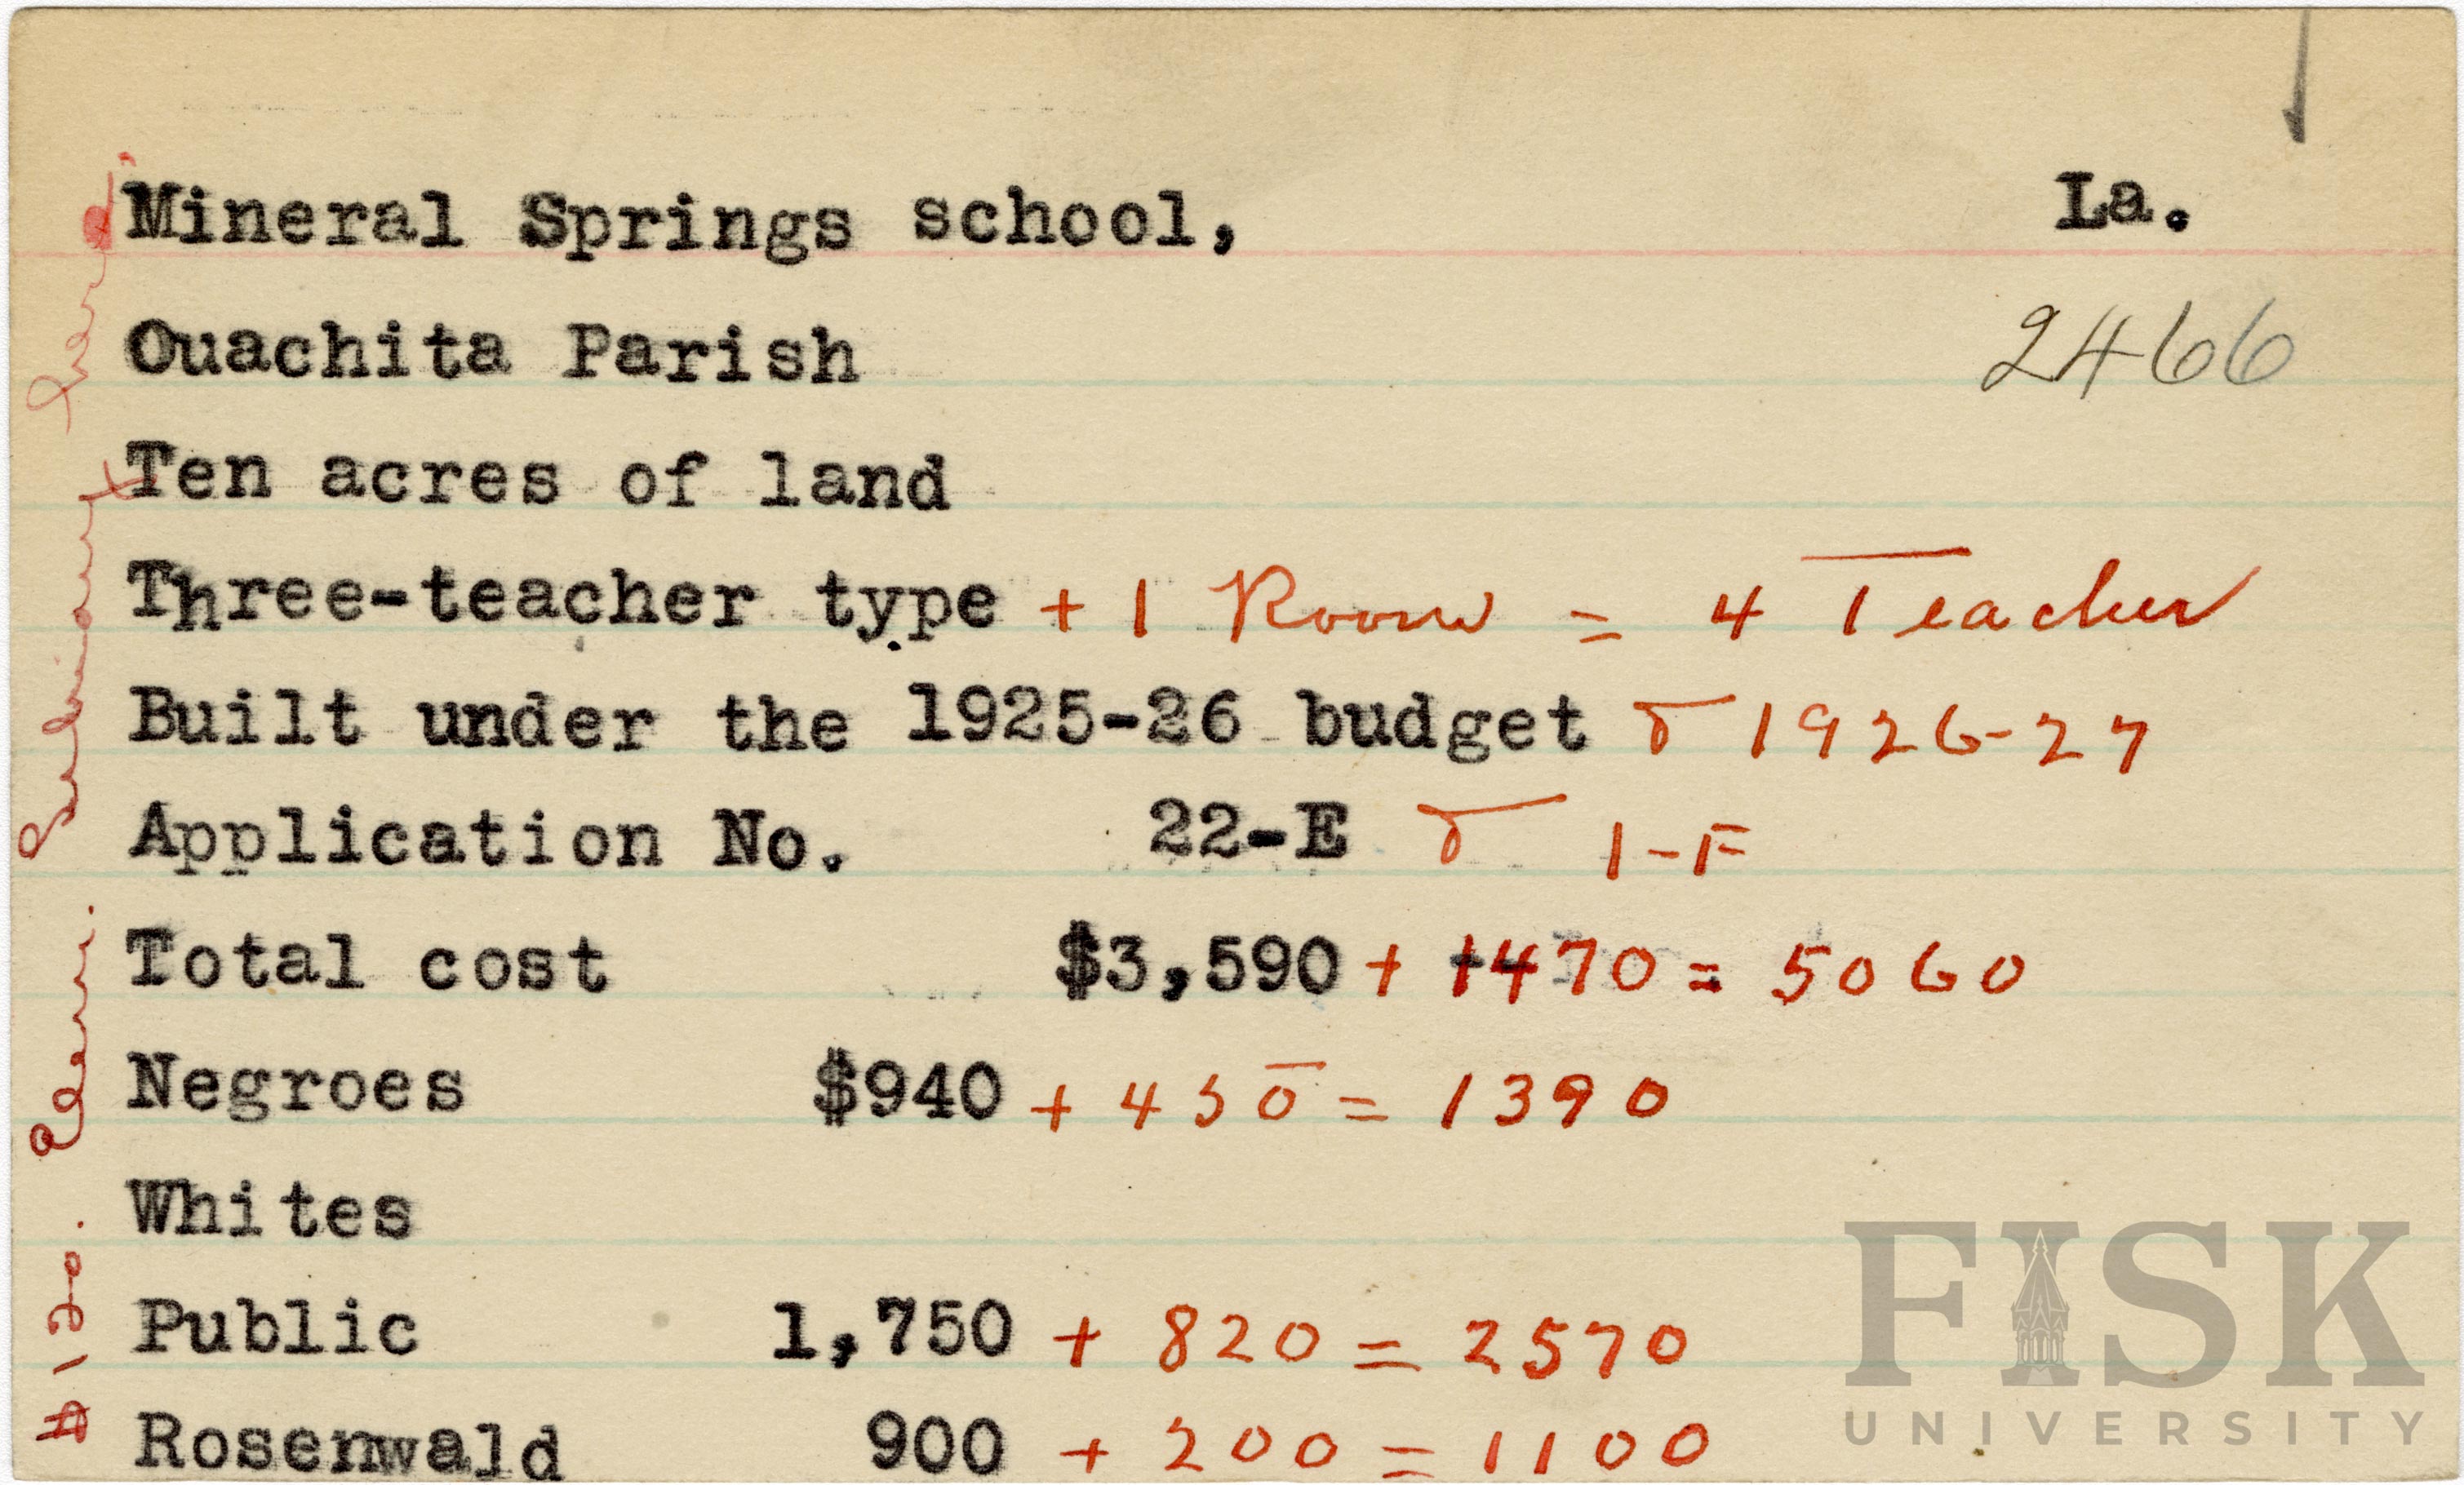 Mineral Springs school, La.
Ouachita Parish 2466
Ten acres of land
Three-teacher type + 1 Room = 4 Teacher
Built under the 1925-26 budget & 1926-27
Application No. 22-E & 1-F
Total cost $3,590 + 1470 = 5060
Negroes $940 + 450 = 1390
Whites
Public 1,750 + 820 = 2570
Rosenwald 900 + 200 = 1100
$120.
FISK
UNIVERSITY